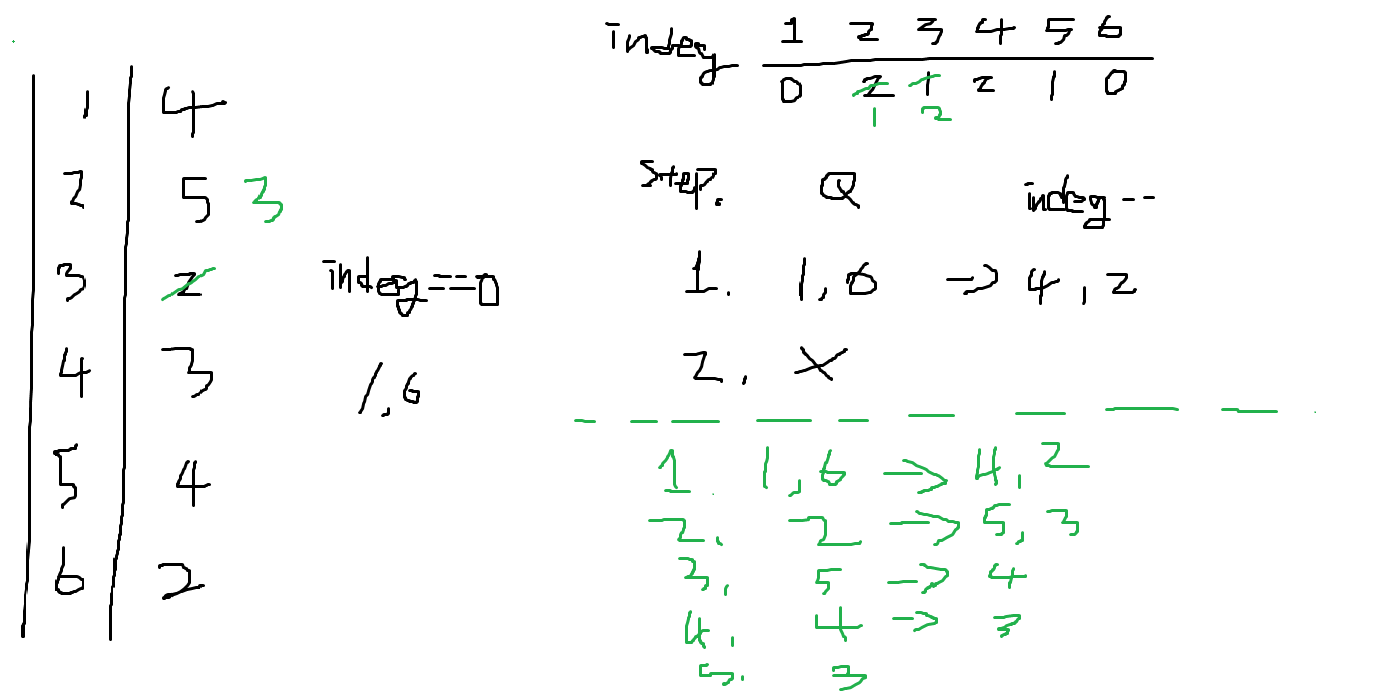 1 4
2 5 3
3 2
4 3
5 4
6 2
indeg==0
1,6
indeg 1 2 3 4 5 6
0 2 1 2 1 0
1 2
Step. Q indeg--
1. 1,6 -> 4,2
2. X
1. 1,6 -> 4,2
2. 2 -> 5,3
3. 5 -> 4
4. 4 -> 3
5. 3